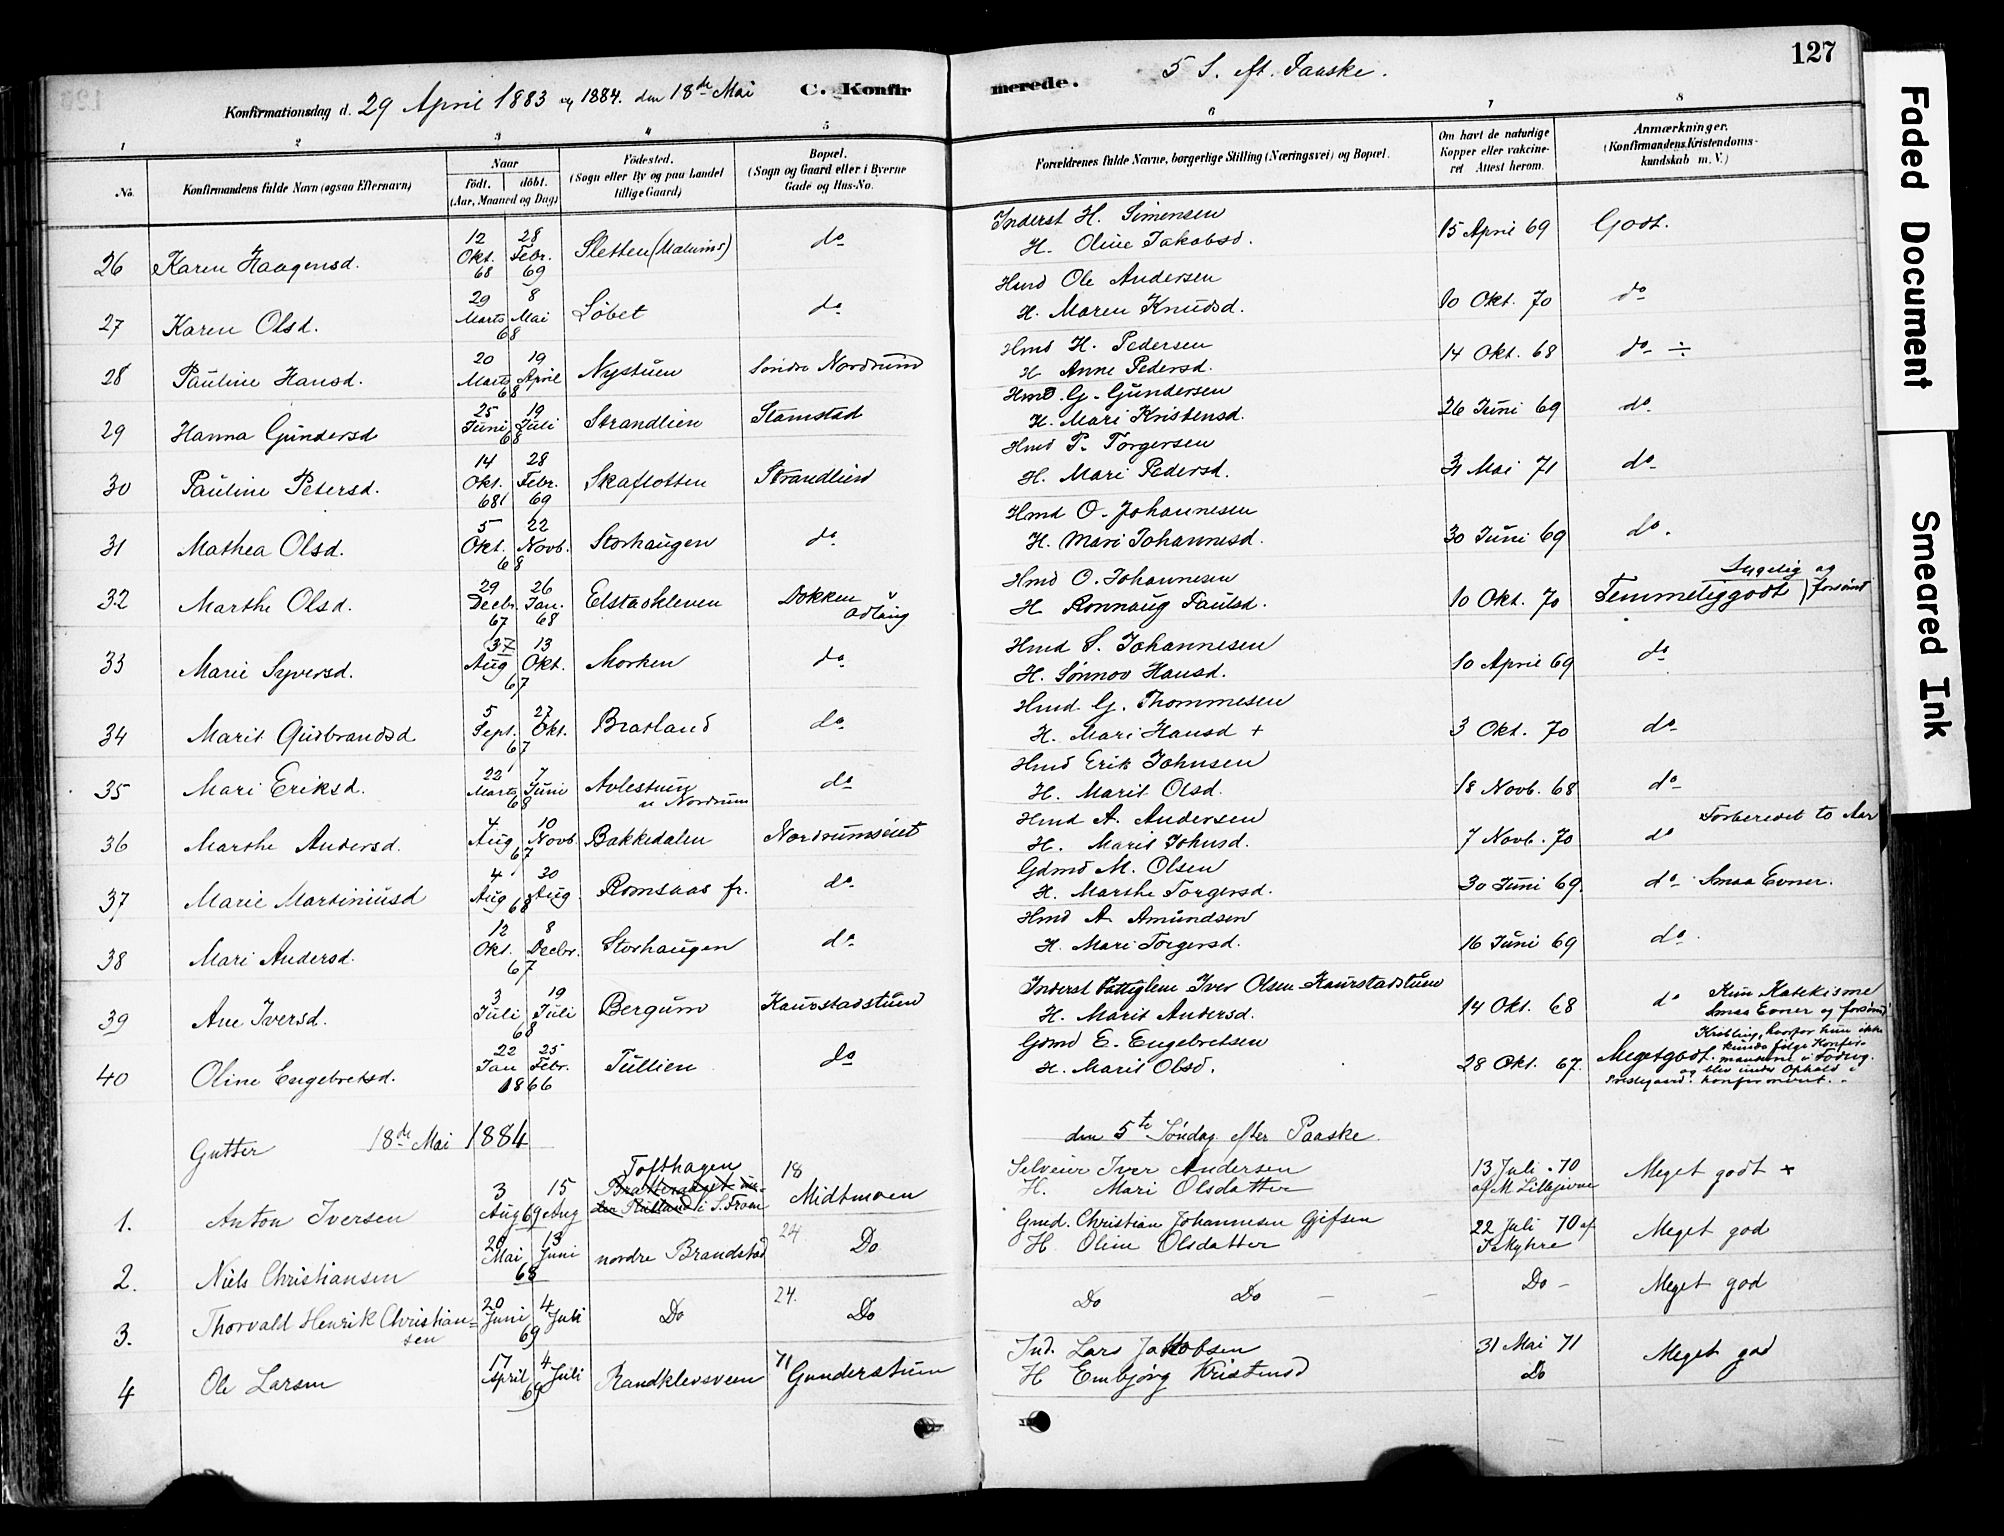 127
5 S. eft. Paaske.
Konfirmationsdag d. 29 April 1883 og 1884. den 18de Mai C. Konfirmerede.
1 2 3 4 5 6 7 8
No. Konfirmandens fulde Navn (ogsaa Efternavn) Naar født. døbt. (Aar, Maaned og Dag) Fødested. (Sogn eller By og paa Landet tillige Gaard) Bopæl. (Sogn og Gaard eller i Byerne Gade og Hus-No. Forældrenes fulde Navne, borgerlige Stilling (Næringsvei) og Bopæl. Om havt de naturlige Kopper eller vakcineret Attest herom. Anmærkninger. (Konfirmandens Kristendomskundskab m. V.)
26 Karen Haagensd. 12 Okt. 68 28 Febr. 69 Sletten do Inderst H. Simensen
H. Oline Jakobsd. 15 April 69 Godt.
27 Karen Olsd. 29 Marts 8 Mai 68 Løbet do Hmd Ole Andersen
H. Maren Knudsd. 10 Okt. 70 do
28 Pauline Hansd. 20 Marts 19 April 68 Nystuen Søndre Nordrum Hmd H. Pedersen
H Anne Pedersd. 14 Okt. 68 do ÷
29 Hanna Gundersd 25 Juni 19 Juli 68 Strandlien Stamstad Hmd. G. Gundersen
H. Mari Kristensd. 26 Juni 69 do
30 Pauline Petersd. 14 Okt. 68 28 Febr. 69 Skaflotten Strandlien Hmd P. Torgersen
H. Mari Pedersd. 31 Mai 71 do
31 Mathea Olsd. 5 Okt. 22 Novb. 68 Storhaugen do Hmd O. Johannesen
H. Mari Johannesd. 30 Juni 69 do.
32 Marthe Olsd. 29 Decbr. 67 26 Jan. 68 Elstadkleven Dokken Hmd O. Johannesen
H Ronnaug Paulsd. 10 Okt. 70 Temmeliggodt Sygelig og forsømt
33 Marie Syversd. Aug 13 Okt. 67 Morken do Hmd S. Johannesen
H. Sønnov Hansd. 10 April 69 do
34 Marit Gudbrandsd 5 Sept. 27 Okt. 67 Bratland do Hmd. G. Thommesen
H. Mari Hansd + 3 Okt. 70 do
35 Mari Eriksd. 22 Marts 7 Juni 68 Avlestuen u Nordrum do Hmd Erik Johnsen
H. Marit Olsd. 18 Novb. 68 do
36 Marthe Andersd. 4 Aug 10 Novb. 67 Bakkedalen Nordrumseiet Hmd A. Andersen
H. Marit Johnsd. 7 Novb. 70 do Forberedet to Aar
37 Marie Martiniusd 4 Aug 30 Aug. 68 Romsaas fr. do Gdmd M. Olsen
H. Marthe Torgersd. 30 Juni 69. do Smaa Evner.
38 Mari Andersd. 12 Okt. 8 Decbr. 67 Storhaugen do Hmd A. Amundsen
H. Mari Torgersd. 16 Juni 69 do
39 Ane Iversd. 3 Juli 19 Juli 68 Bergum Kaurstadstuen Inderst Iver Olsen Kaurstadstuen
H. Marit Andersd. 14 Okt. 68 do Kun Katekisme Smaa Evner og forsømt
40 Oline Engebretsd. 22 Jan 25 Febr. 1866 Tullien do Gdmd E. Engebretsen
H. Marit Olsd. 28 Okt. 67. Megetgodt. Krøbling, hvorfor hun ikke kunde følge Konfirmanderne i Fodvig. og blev under Ophold i Prestegaard. konfirmeret.
Gutter 18de Mai 1884 den 5te Søndag efter Paaske.
1. Anton Iversen 3 Aug 15 Aug 69 Tofthagen i S. Fron 18 Midtmoen Selveier Iver Andersen
H. Mari Olsdatter 13 Juli 70 af M. Meget godt +
2. Niels Christiansen 20 Mai 13 Juni 68 nordre Brandstad 24 Do Gmd. Christian Johannesen
H. Oline Olsdatter 22 Juli 70 af Meget god
3. Thorvald Henrik Christiansen 20 Juni 4 Juli 69 Do 24. Do Do Do Do Meget god
4 Ole Larsen 17 April 4 Juli 69 Randklevsveen 71 Gunderstuen Ind. Lars Jakobsen
H Embjørg Kristensd 31 Mai 71 Do Meget god
Faded Document
Smeared Ink